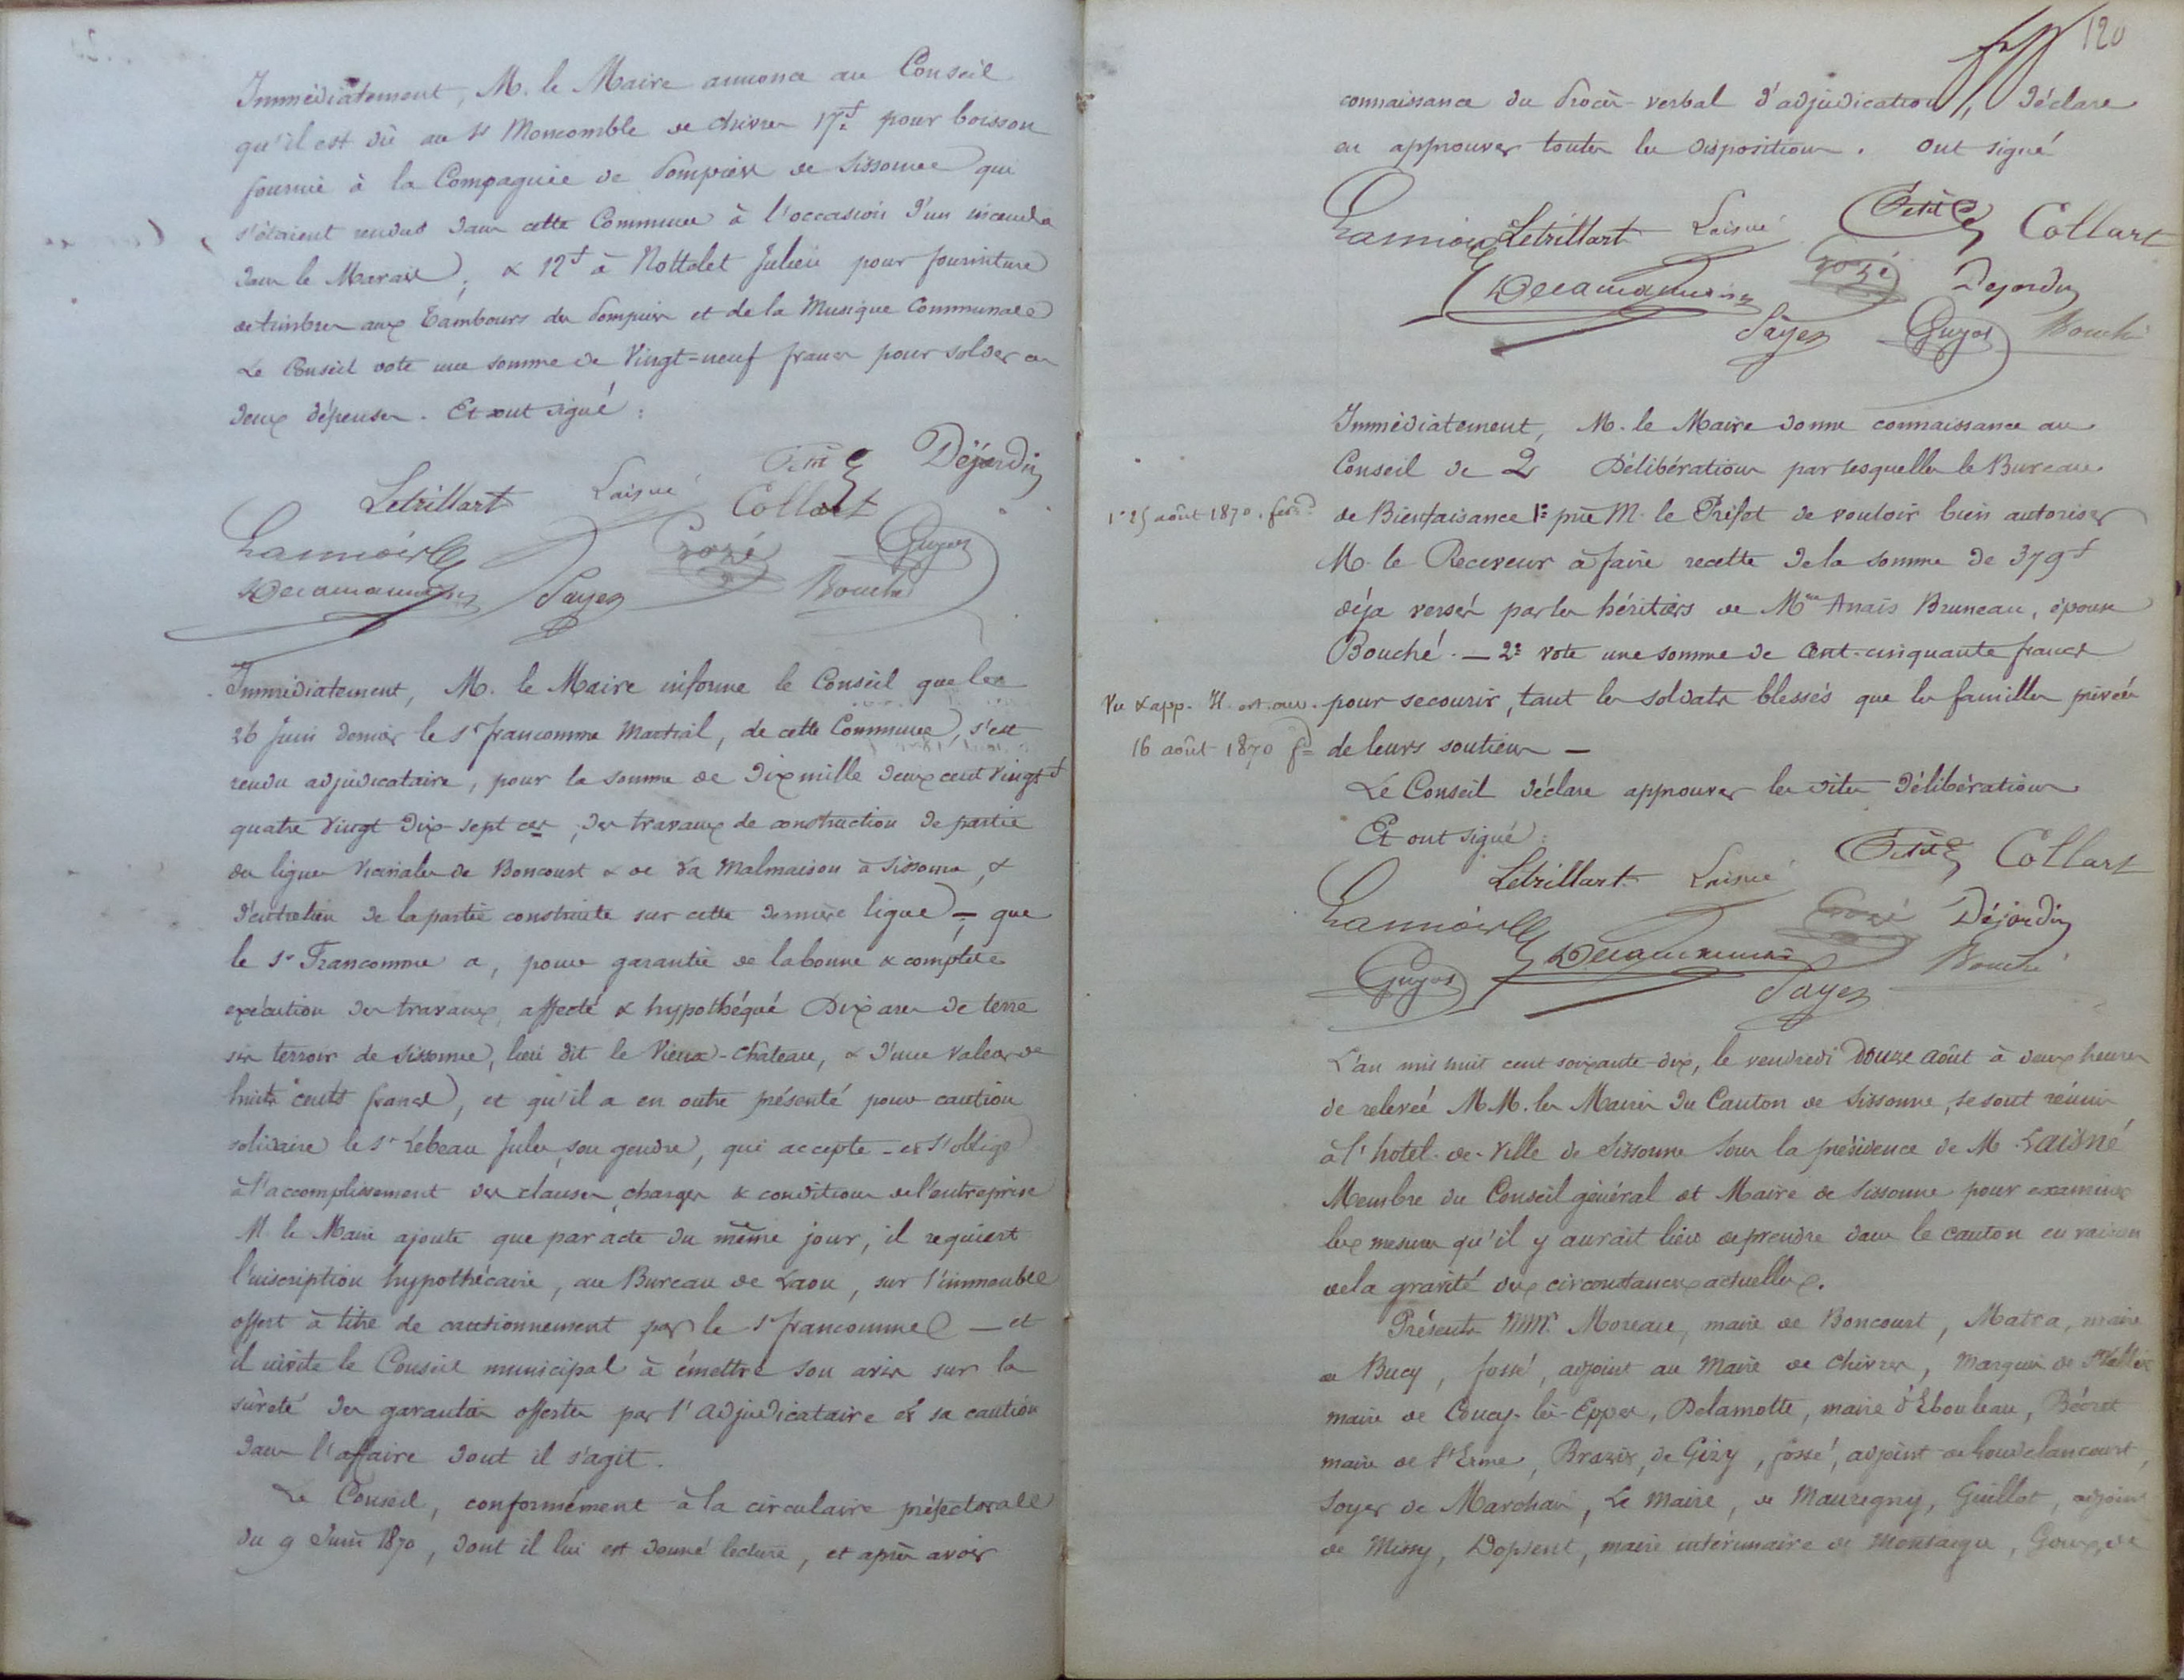 Immédiatement, M. le Maire annonce au Conseil
qu'il est dû au Sr Moncomble de Chivres 17f pour boisson
fournie à la Compagnie de Pompiers de Sissonne qui
s'étaient rendus dans cette Commune à l'occasion d'un incendie
dans le Marais, & 12f à Nottelet Julien pour fourniture
de timbres aux Tambours des Pompiers et de la Musique Communale
Le Conseil vote une somme de Vingt-neuf francs pour solder ces
deux dépenses. Et ont signé :
Petit Déjardin
Letrillart Laisné Collart
Lannois Crozé Guyot
Payen Bouché
Immédiatement, M. le Maire informe le Conseil que le
26 Juin dernier le Sr francomme Martial, de cette Commune, s'est
rendu adjudicataire, pour la somme de Dix mille deux cent vingt f
quatre vingt dix sept ces, des travaux de construction de partie
des lignes vicinales de Boncourt & de La Malmaison à Sissonne, &
d'entretien de la partie construite sur cette dernière ligne — que
le Sr Francomme a, pour garantie de la bonne & complète
exécution des travaux, affecté & hypothéqué Dix ares de terre
sis terroir de Sissonne, lieu dit le Vieux-château, & d'une valeur de
huit cents francs, et qu'il a en outre présenté pour caution
solidaire le Sr Lebeau Jules, son gendre, qui accepte et s'oblige
à l'accomplissement des clauses, charges & conditions de l'entreprise
M. le Maire ajoute que par acte du même jour, il requiert
l'inscription hypothécaire, au Bureau de Laon, sur l'immeuble
offert à titre de cautionnement par le Sr francomme — et
il invite le Conseil municipal à émettre son avis sur la
sûreté des garanties offertes par l'adjudicataire et sa caution
dans l'affaire dont il s'agit.
Le Conseil, conformément à la circulaire préfectorale
du 9 Juin 1870, dont il lui est donné lecture, et après avoir
120
connaissance du Procès-verbal d'adjudication, déclare
en approuver toutes les dispositions. Ont signé
Lannois Letrillart Laisné Petit Collart
Crozé Dejardin
Payen Guyot Bouché
Immédiatement, M. le Maire donne connaissance au
Conseil de 2 Délibérations par lesquelles le Bureau
1° 25 août 1870. de Bienfaisance 1° prie M. le Préfet de vouloir bien autoriser
M. le Receveur à faire recette de la somme de 379f
déja versée par les héritiers de Mme Anaïs Bruneau, épouse
Bouché. — 2° vote une somme de Cent-cinquante francs
Vu & app. pour secourir, tant les soldats blessés que les familles privées
16 août 1870 de leurs soutiens —
Le Conseil déclare approuver les dites délibérations
Et ont signé :
Letrillart Laisné Petit Collart
Lannois Crozé Déjardin
Guyot Payen Bouché
L'an mil huit cent soixante-dix, le vendredi Douze août à deux heures
de relevée MM. les Maires du Canton de Sissonne, se sont réunis
à l'hotel-de-Ville de Sissonne sous la présidence de M. Laisné
Membre du Conseil général et Maire de Sissonne pour examiner
les mesures qu'il y aurait lieu de prendre dans le canton en raison
de la gravité des circonstances actuelles.
Présents MM. Moreau, maire de Boncourt, Matra, maire
de Bucy, fossé, adjoint au maire de Chivres, Marquis de
maire de Coucy-lès-Eppes, Delamotte, maire d'Ebouleau, Bécret
maire de St Erme, Brazier, de Gizy, fossé, adjoint de Goudelancourt,
Soyer de Marchais, Le Maire, de Mauregny, Guillot, adjoint
de Missy, Dopsent, maire intérimaire de Montaigu, Goux, de